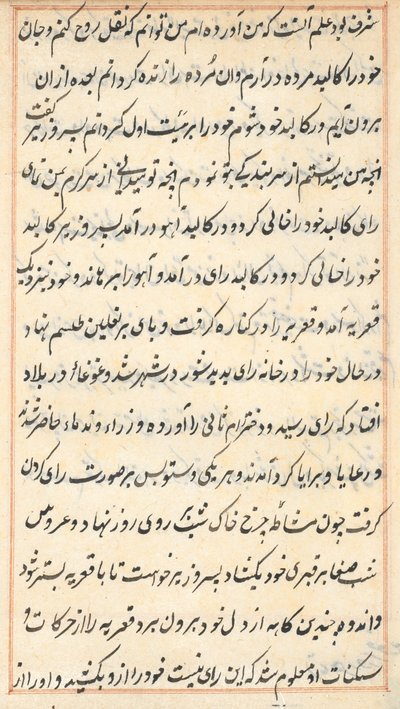 شرف بود علم آنست که من آورده ام من توانم که نقل روح کنم و جان
خود را کالبد مرده در آرم وان مرده را زنده گردانم بعده ازان
برون آیم در کالبد خود شوم خود را بر هیئت اول گردانم پسر وزیر گفت
انچه من میدانستم از سر بندیکی بتو نمودم انچه تو میدانی از سر کرم بمن نمای
رای کالبد خود را خالی کرد و در کالبد آهو در آمد پسر وزیر کالبد
خود را خالی کرد و در کالبد رای در آمد و آهو را براند و خود نزدیک
قعریه آمد و قعریه را در کناره گرفت و پای بر نعلین طلسم نهاد
در حال خود را در خانه رای بدید شور در شهر شد و غوغا در بلاد
افتاد که رای رسید و دختر ام ثانی را آورده وزراء و ندماء حاضر شدند
و رعایا و برایا گرد آمدند و هر یکی دستبوس بر صورت رای کردن
گرفت چون مشاطه چرخ خاک شب بر روی روز نهاد و عروس
شب بر قبری خود بگشاد پسر وزیر خواست تا با قعریه بستر شود
و اندوه چندین گاهه از دل خود برون برد قعریه را از حرکات و
سکنات او معلوم شد که این رای نیست خود را ازو بکشید و او را از